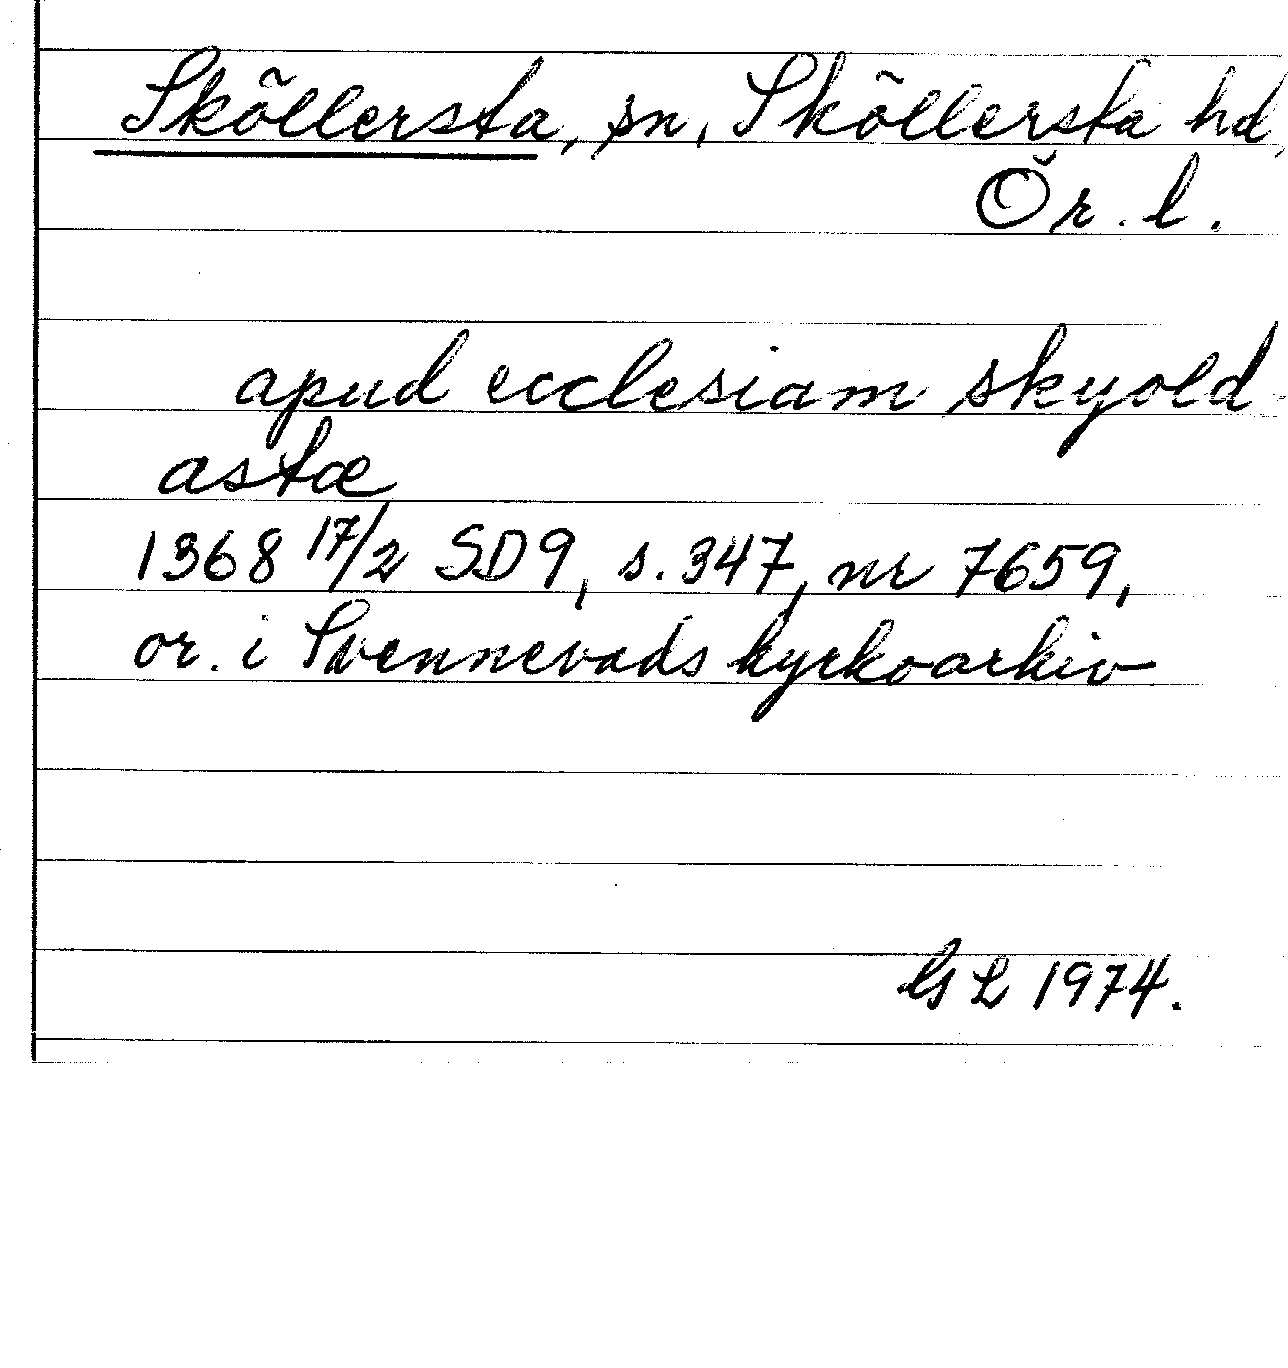 Sköllersta, sn, Sköllersta hd,
Ör. l.
apud ecclesiam skyold-
astæ
1368 17/2 SD9, s. 347, nr 7659,
or. i Svennevads kyrkoarkiv
GL 1974.